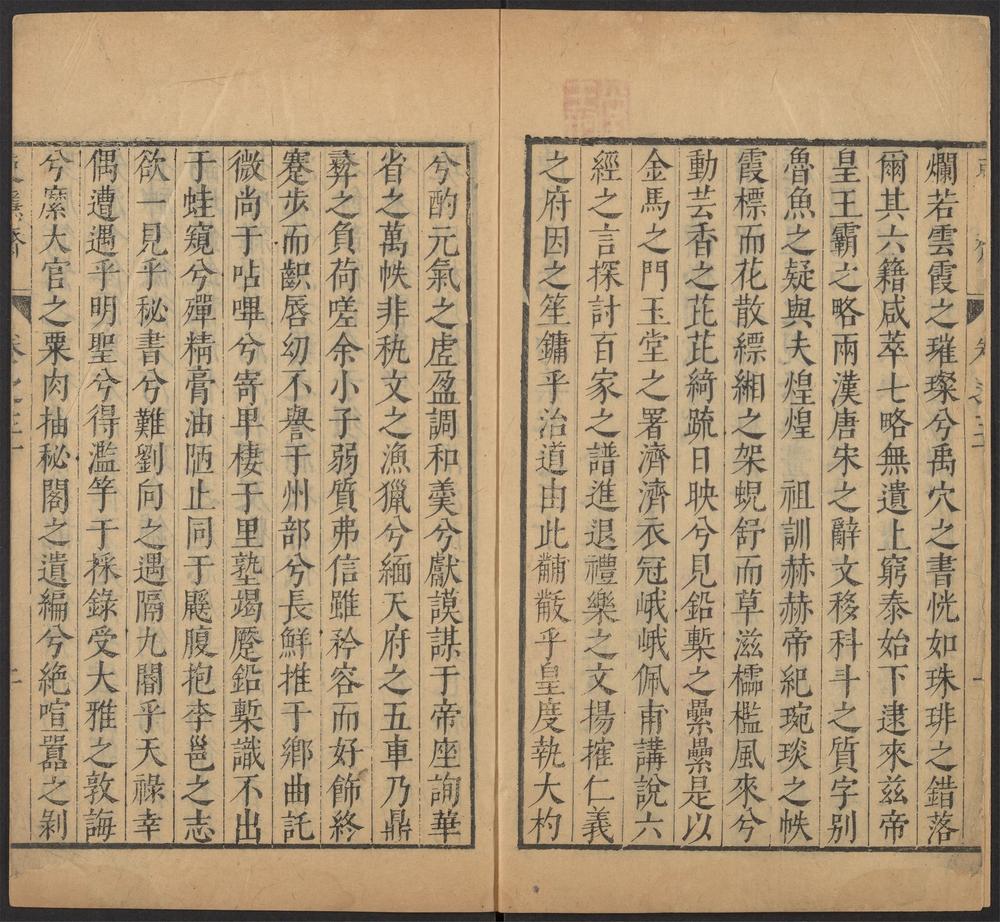 爛若雲霞之璀璨兮禹穴之書恍如珠琲之錯落
爾其六籍咸萃七略無遺上窮泰始下逮來茲帝
皇王霸之略兩漢唐宋之辭文移科斗之質字別
魯魚之疑與夫煌煌　祖訓赫赫帝紀琬琰之帙
霞標而花散縹緗之架蜺舒而草滋櫺檻風來兮
動芸香之苾苾綺疏日映兮見鉛槧之纍纍是以
金馬之門玉堂之署濟濟衣冠峨峨佩甫講說六
經之言探討百家之譜進退禮樂之文揚搉仁義
之府因之笙鏞乎治道由此黼黻乎皇度執大杓
兮酌元氣之虛盈調和羹兮獻謨謀于帝座詢華
省之萬帙非秇文之漁獵兮緬天府之五車乃鼎
彝之負荷嗟余小子弱質弗信雖矜容而好飾終
蹇步而齞唇幼不譽于州部兮長鮮推于鄉曲託
微尚于呫嗶兮寄卑棲于里塾竭蹷鉛槧識不出
于蛙窺兮殫精膏油陋止同于鼴腹抱李邕之志
欲一見乎秘書兮難劉向之遇隔九閽乎天祿幸
偶遭遇乎明聖兮得濫竽于採錄受大雅之敦誨
兮縻大官之粟肉抽秘閣之遺編兮絶喧囂之剝